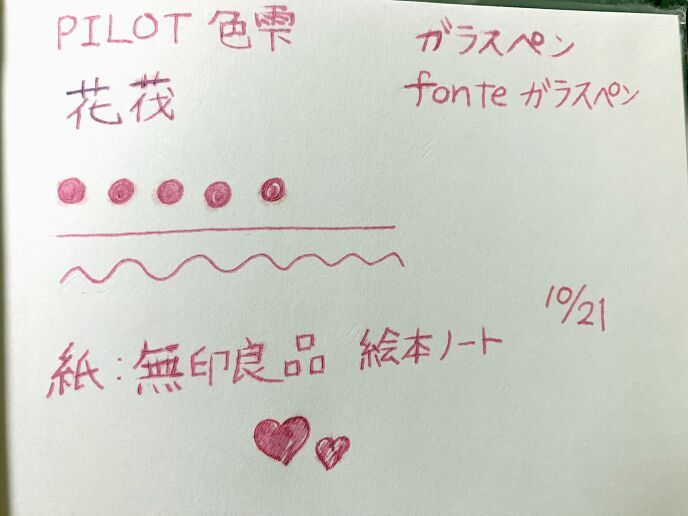 PILOT 色雫
ガラスペン
花筏
fonte ガラスペン
10/21
紙:無印良品 絵本ノート